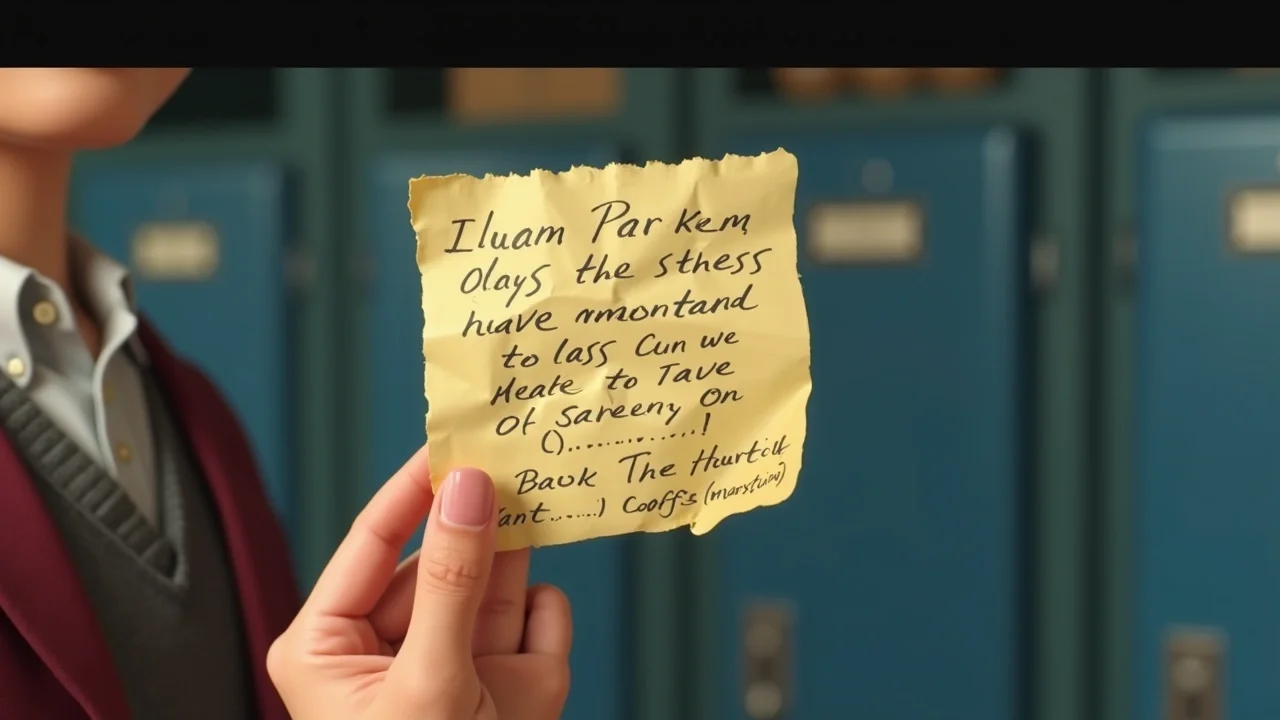 Iluam Par Kem,
Olays the sthess
huave nmontand
to lass Cun we
Meate to Tave
Of Sareeny On
()..............!
Bauk The Hurtich
ant......) Cooffs (marstiud)